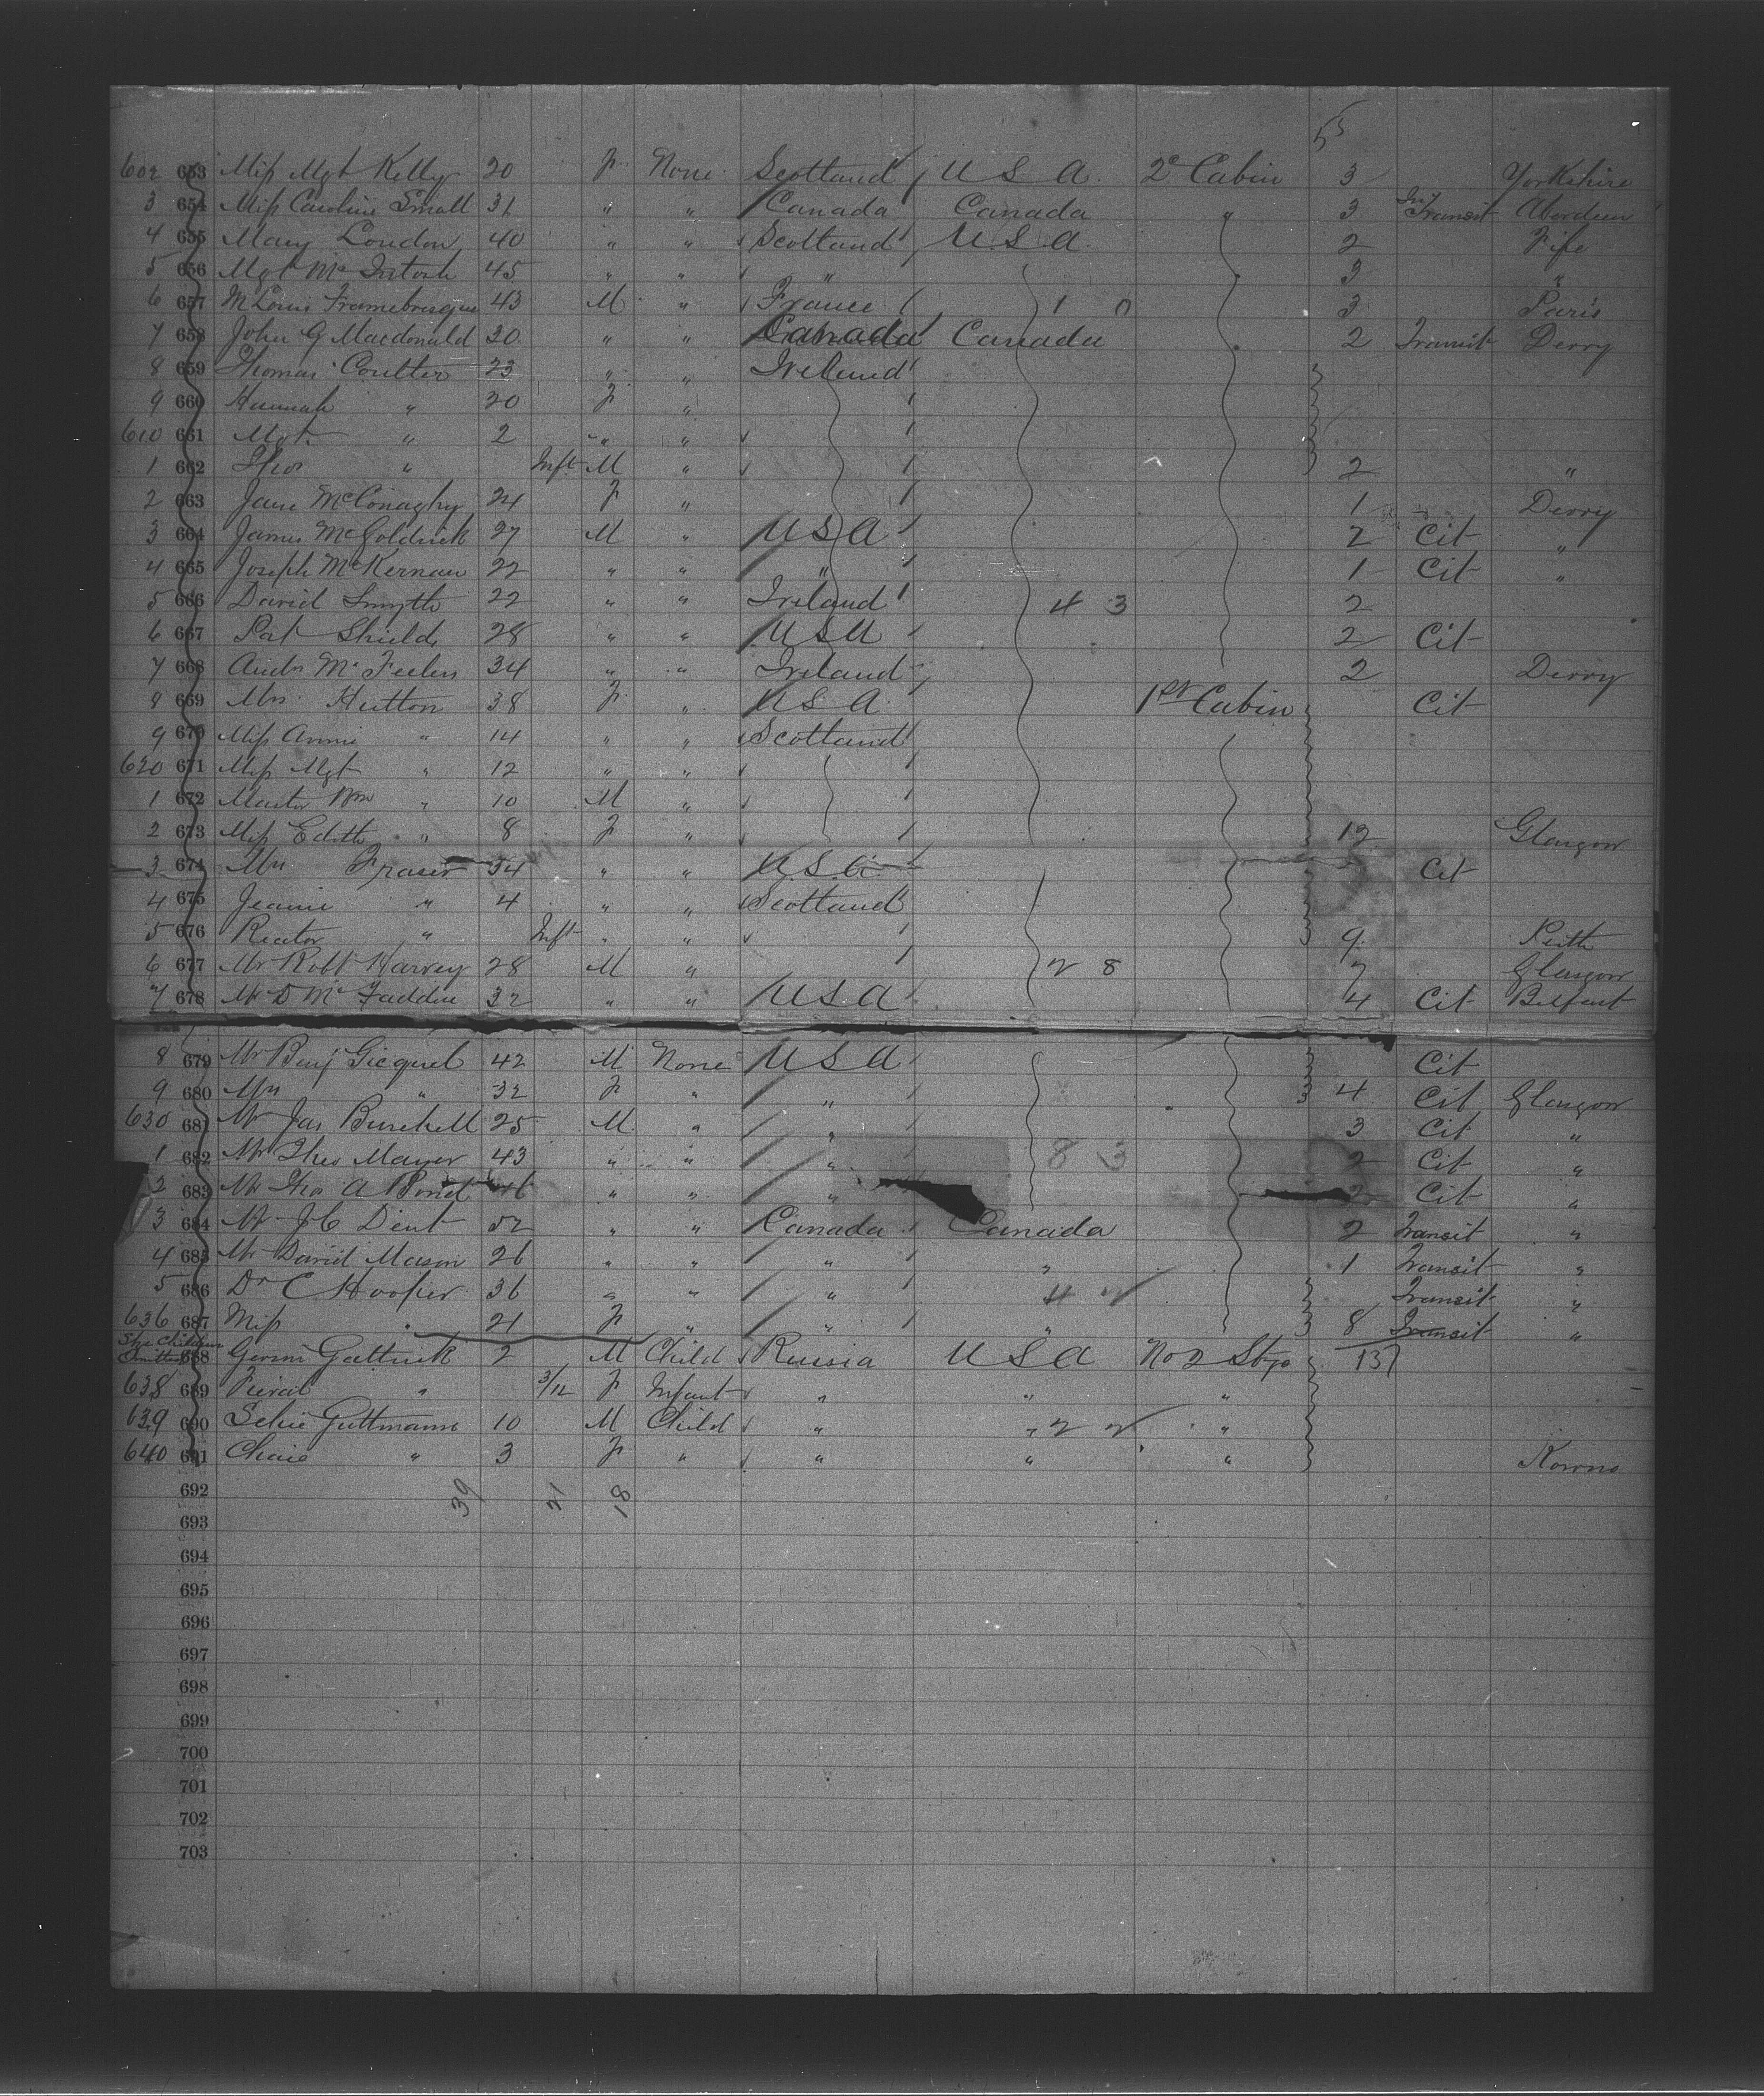 55
602 653 Miss Mgt Kelly 20 F None Scotland U S A. 2d Cabin 3 Yorkshire
3 654 Miss Caroline Small 31 " " Canada Canada " 3 In Transit Aberdeen
4 655 Mary London 40 " " Scotland U.S.A. 2 Fife
5 656 Mgt McIntosh 45 " " " 3 "
6 657 M Louis 43 M " France 1 0 3 Paris
7 658 John G Macdonald 30 " " Canada Canada 2 Transit Derry
8 659 Thomas Coulter 23 " " Ireland
9 660 Hannah " 20 F "
610 661 Mgt. " 2 " "
1 662 Thos " Inft M " 2 "
2 663 Jane McConaghy 24 F " 1 Derry
3 664 James McGoldrick 27 M " U S A 2 Cit "
4 665 Joseph McKernan 22 " " " 1 Cit "
5 666 David Smyth 22 " " Ireland 4 3 2
6 667 Pat Shields 28 " " U S A 2 Cit
7 668 Andw 34 " " Ireland 2 Derry
8 669 Mrs. Hutton 38 F " U S A 1st Cabin Cit
9 670 Miss Annie " 14 " " Scotland
620 671 Miss Mgt " 12 " "
1 672 Master Wm " 10 M "
2 673 Miss Edith " 8 F " 12 Glasgow
3 674 Mrs Fraser 34 " " U.S.A. Cit
4 675 Jeanie " 4 " " Scotland
5 676 " Inft " " 9 Perth
6 677 Mr Robt Harvey 28 M " 2 8 7 Glasgow
7 678 Mr D McFadden 32 " " U S A 4 Cit Belfast
8 679 Mr Benj Gicquel 42 M None U S A Cit
9 680 Mrs " 32 F " " 4 Cit Glasgow
630 681 Mr Jas Burchell 25 M " " 3 Cit "
1 682 Mr Theo Mayer 43 " " " 8 3 2 Cit "
2 683 Mr Thos A Bond 46 " " " 2 Cit "
3 684 Mr J C Dent 52 " " Canada Canada 2 Transit "
4 685 Mr David Mason 26 " " " " 1 Transit "
5 686 Dr C Hooper 36 " " " 4 2 Transit "
636 687 Miss 21 F " " " 8 Transit "
Stge Children Omitted 688 2 M Child Russia U S A No 2 Stge 137
638 689 " 3/12 F Infant " " "
639 690 Guttmann 10 M Child " " 2 2 "
640 691 " 3 F " " " " Kowno
692 39 21 18
693
694
695
696
697
698
699
700
701
702
703